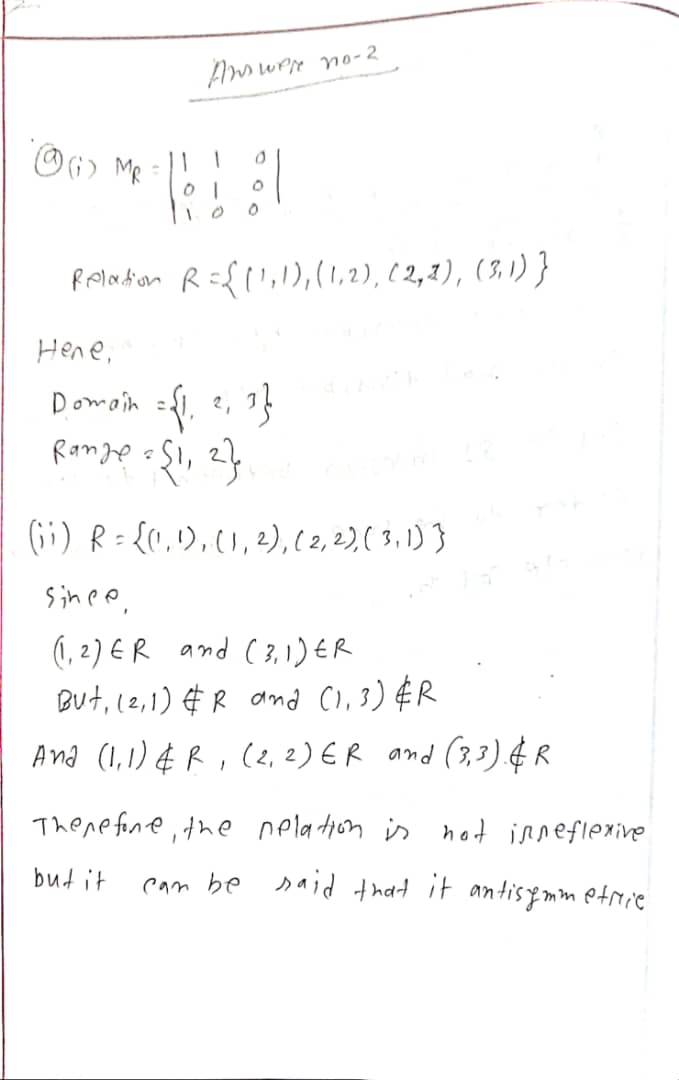 Answer no-2
(a) (i) MR = |1 1 0
0 1 0
1 0 0|
Relation R = {(1,1), (1,2), (2,2), (3,1)}
Here,
Domain = {1, 2, 3}
Range = {1, 2}
(ii) R = {(1,1), (1,2), (2,2), (3,1)}
Since,
(1,2) ∈ R and (3,1) ∈ R
But, (2,1) ∉ R and (1,3) ∉ R
And (1,1) ∉ R, (2,2) ∈ R and (3,3) ∉ R
Therefore, the relation is not irreflexive
but it can be said that it antisymmetric